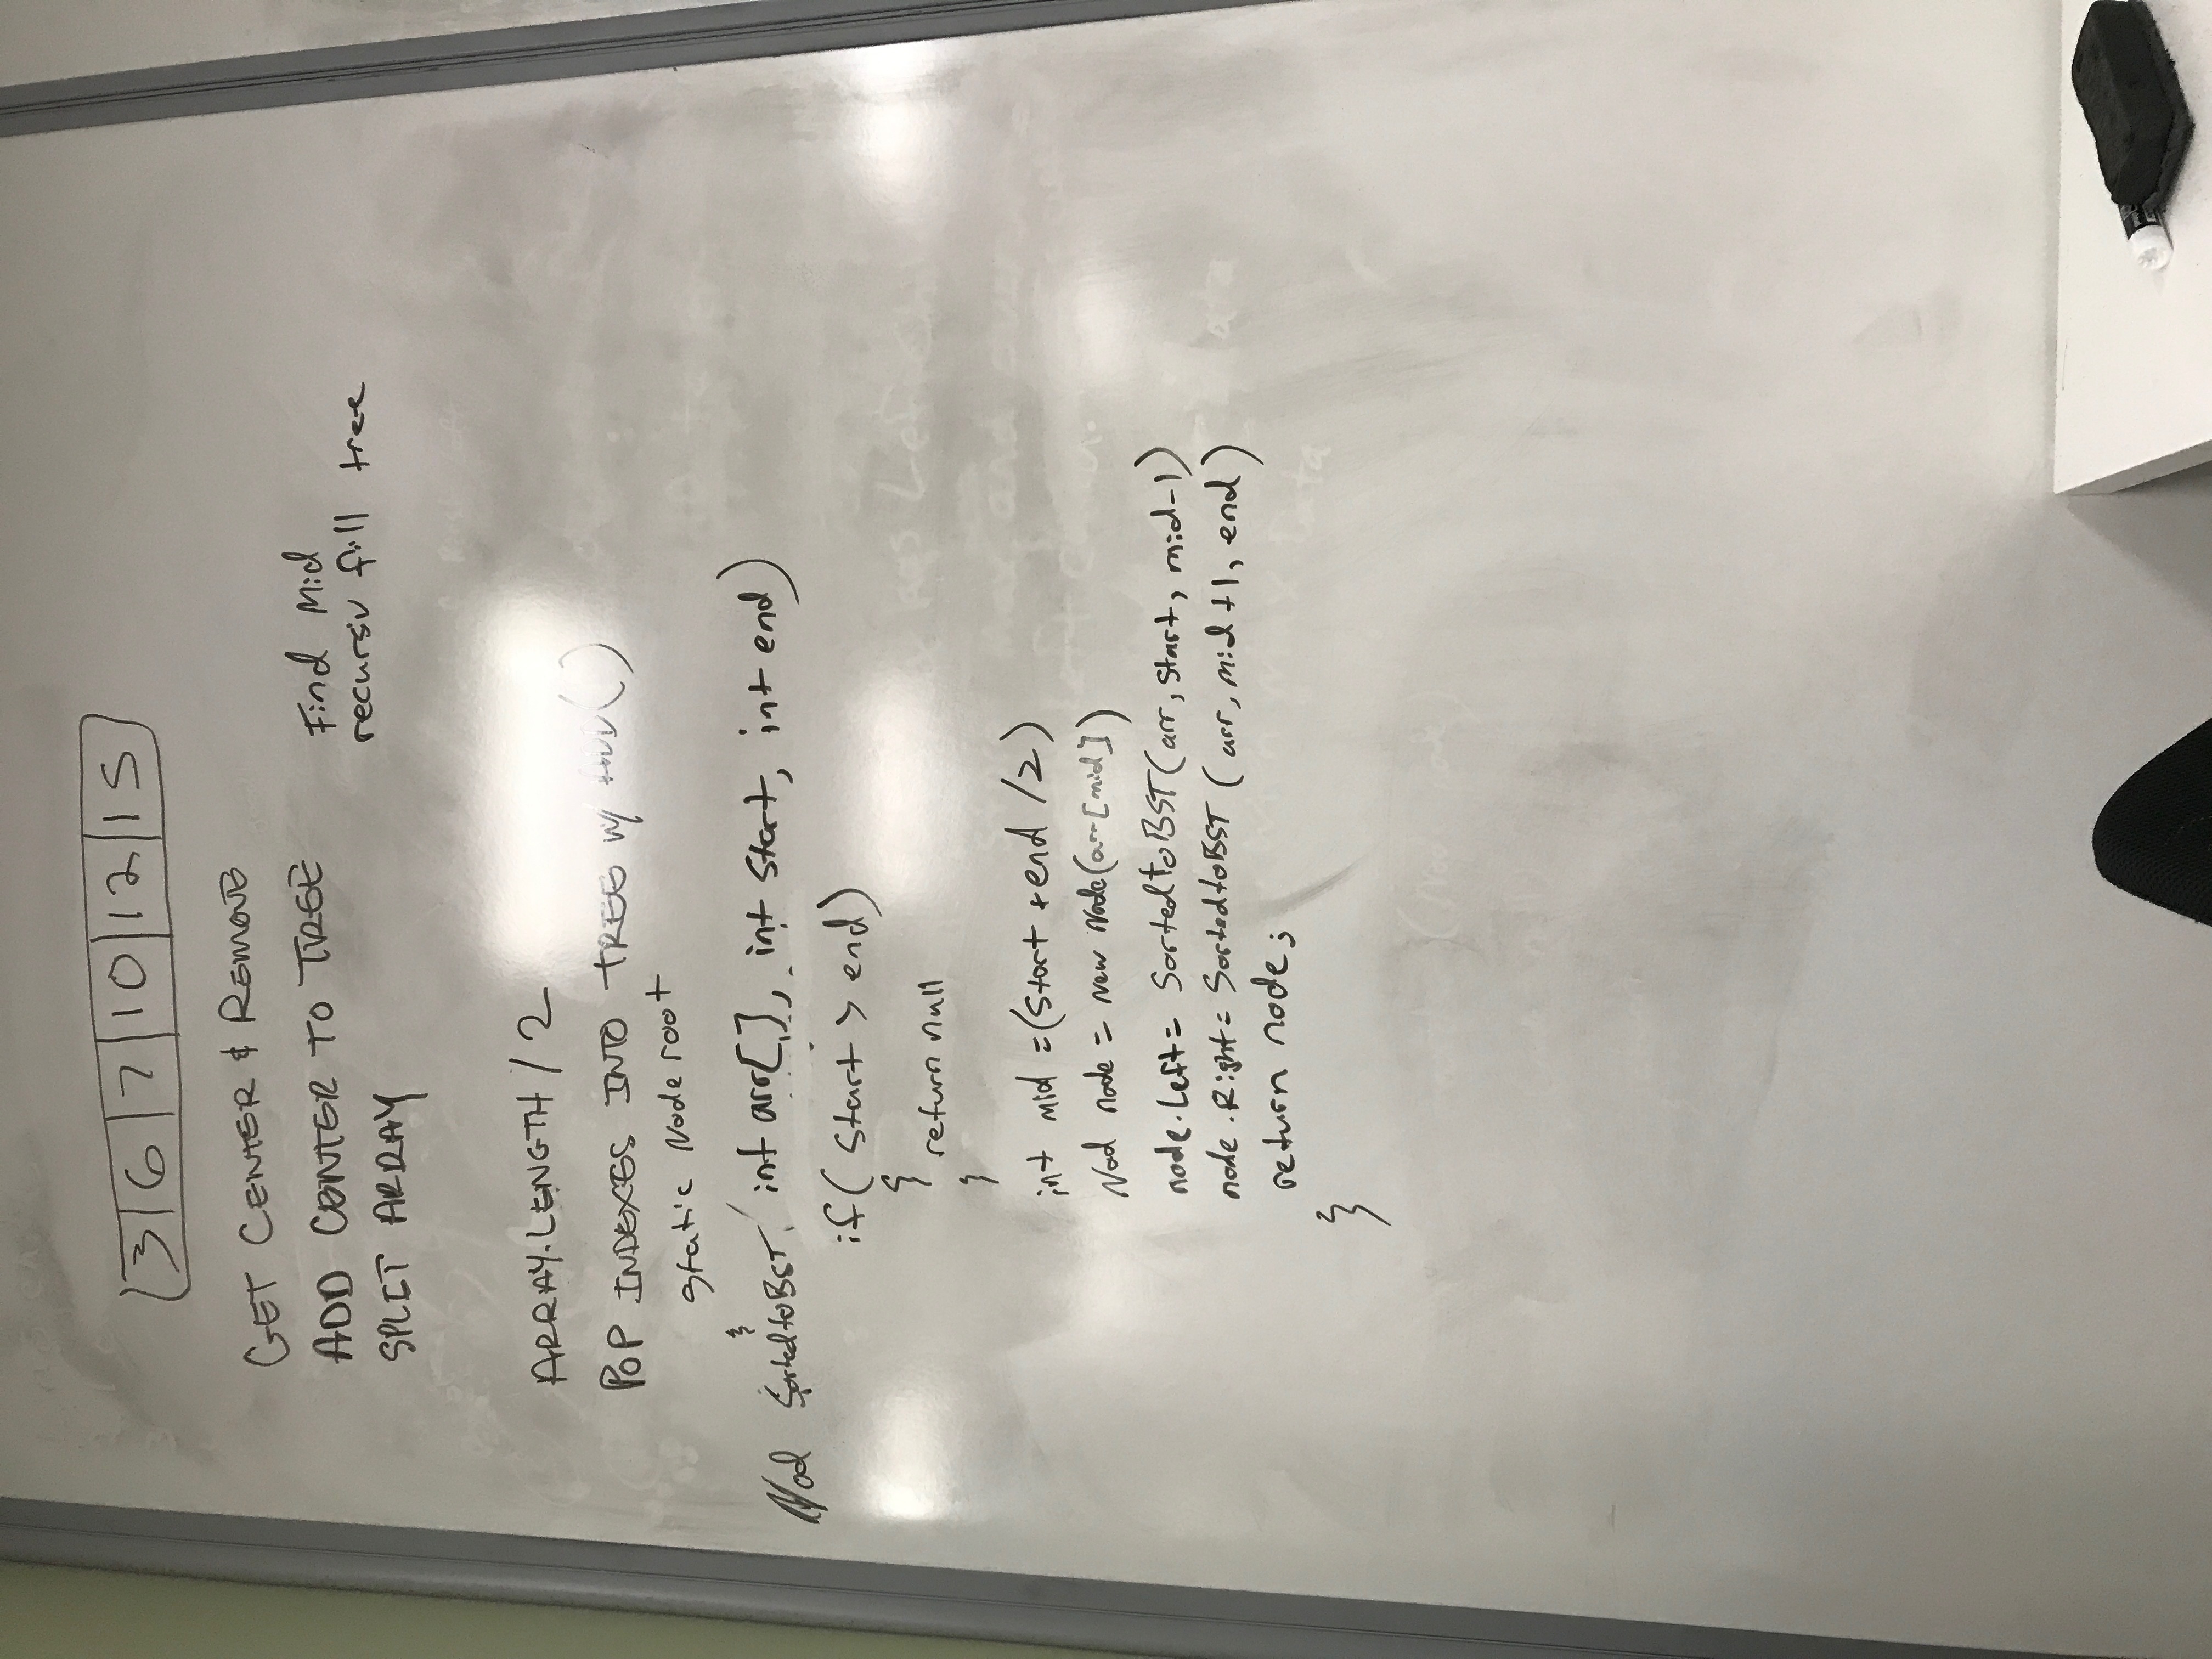 3 6 7 10 12 15
GET CENTER & REMOVE
ADD CENTER TO TREE
SPLIT ARRAY
Find Mid
recursiv fill tree
ARRAY.LENGTH / 2
POP INDEXES INTO TREE w/ ADD()
static Node root
}
Nod SortedtoBST( int arr[], int start, int end)
if( start > end)
{
return null
}
int mid =(start +end /2)
Nod node = new Node(arr[mid])
node.Left= SortedtoBST(arr, start, mid-1)
node.Right= SortedtoBST (arr, mid +1, end)
return node;
}